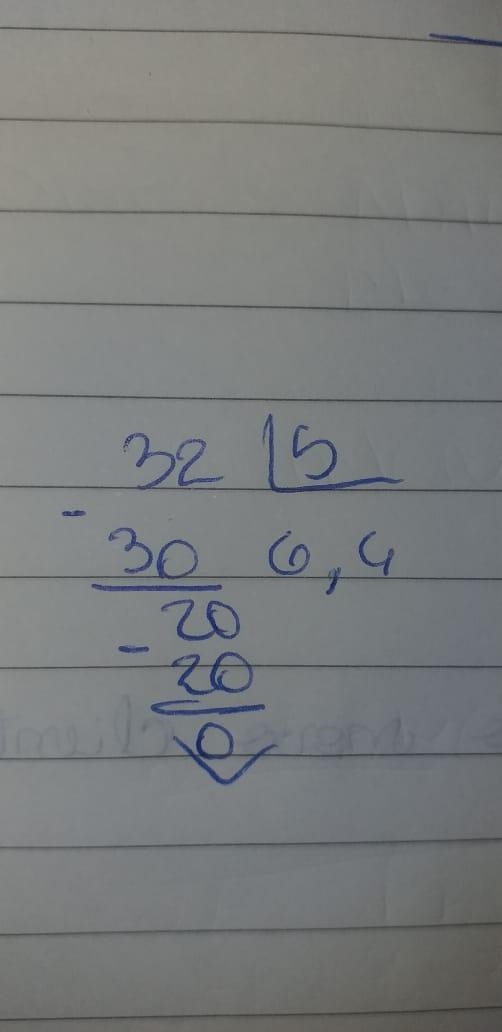 32 5
- 30 6,4
20
- 20
0